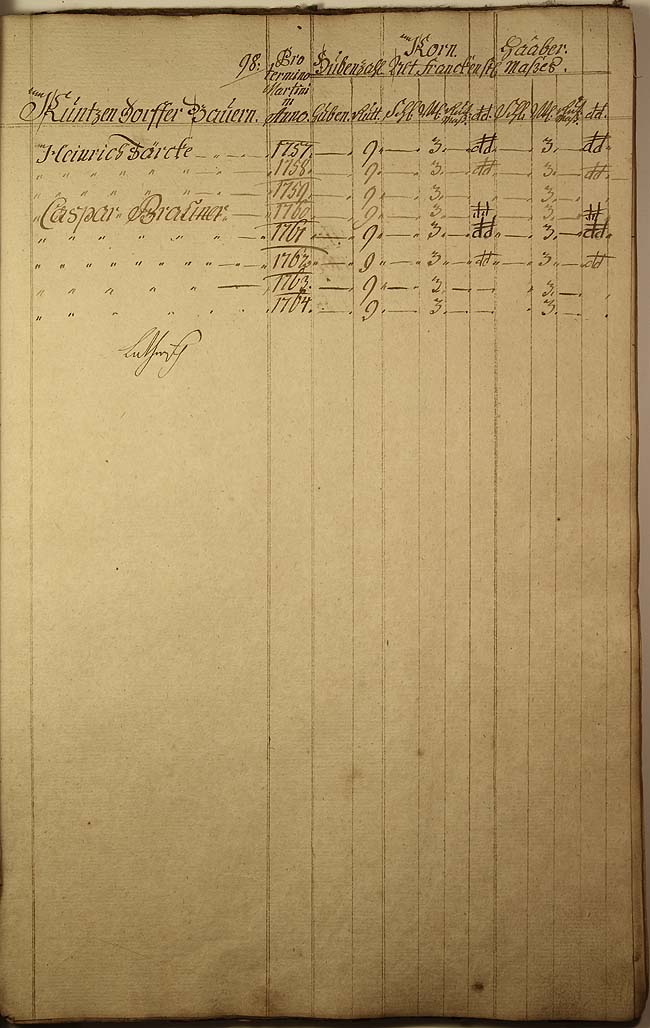 98. Pro Korn. Haaber.
termino Hübenzahl Alt Franckenst. Maßes.
Martini
in
Küntzendorffer Bauern. Anno. Huben. Rutt. Schl. Mtz. dd. Schl. Mtz. dd.
Heinrich Börcke — 1757. — 9. — 3. dd — 3. dd
" " " " 1758. — 9. — 3. dd — 3. dd
" " " " 1759. — 9. — 3. — 3.
Caspar Brauner 1760. — 9. — 3. dd — 3. dd
" " " " 1761. — 9. — 3. dd — 3. — dd
" " " " 1762. — 9. — 3. dd — 3. — dd
" " " " — 1763. — 9. — 3. — 3. —
" " " " 1764. — 9. — 3. — 3. —